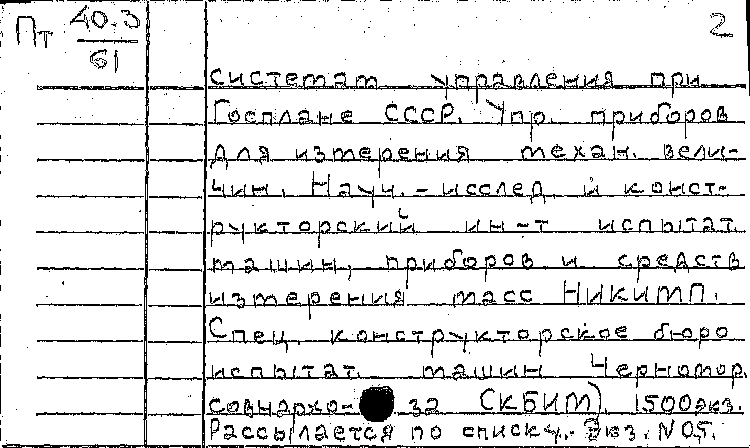 Пт 40.3
61
2
системам управления при
Госплане СССР. Упр. приборов
для измерения механ. вели-
чин. Науч.-исслед. и конст-
рукторский ин-т испытат.
машин, приборов и средств
измерения масс НИКИМП.
Спец. конструкторское бюро
испытат. машин Черномор.
совнархо- за СКБИМ). 1500экз.
Рассылается по списку.- Экз. N05.